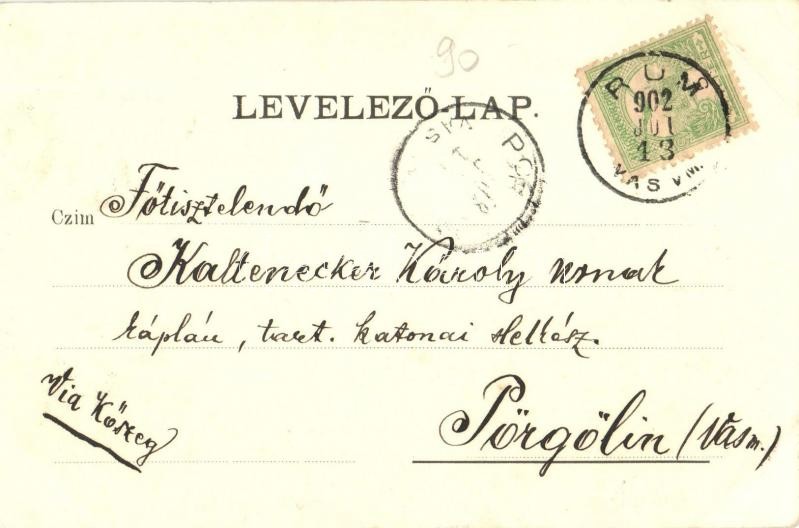 90
LEVELEZŐ-LAP.
RUM
902
JUL
13
VAS VM.
Czim Főtisztelendő
Kaltenecker Károly urnak
káplán, tart. katonai lelkész.
Via Kőszeg
Pörgölin (Vasm.)